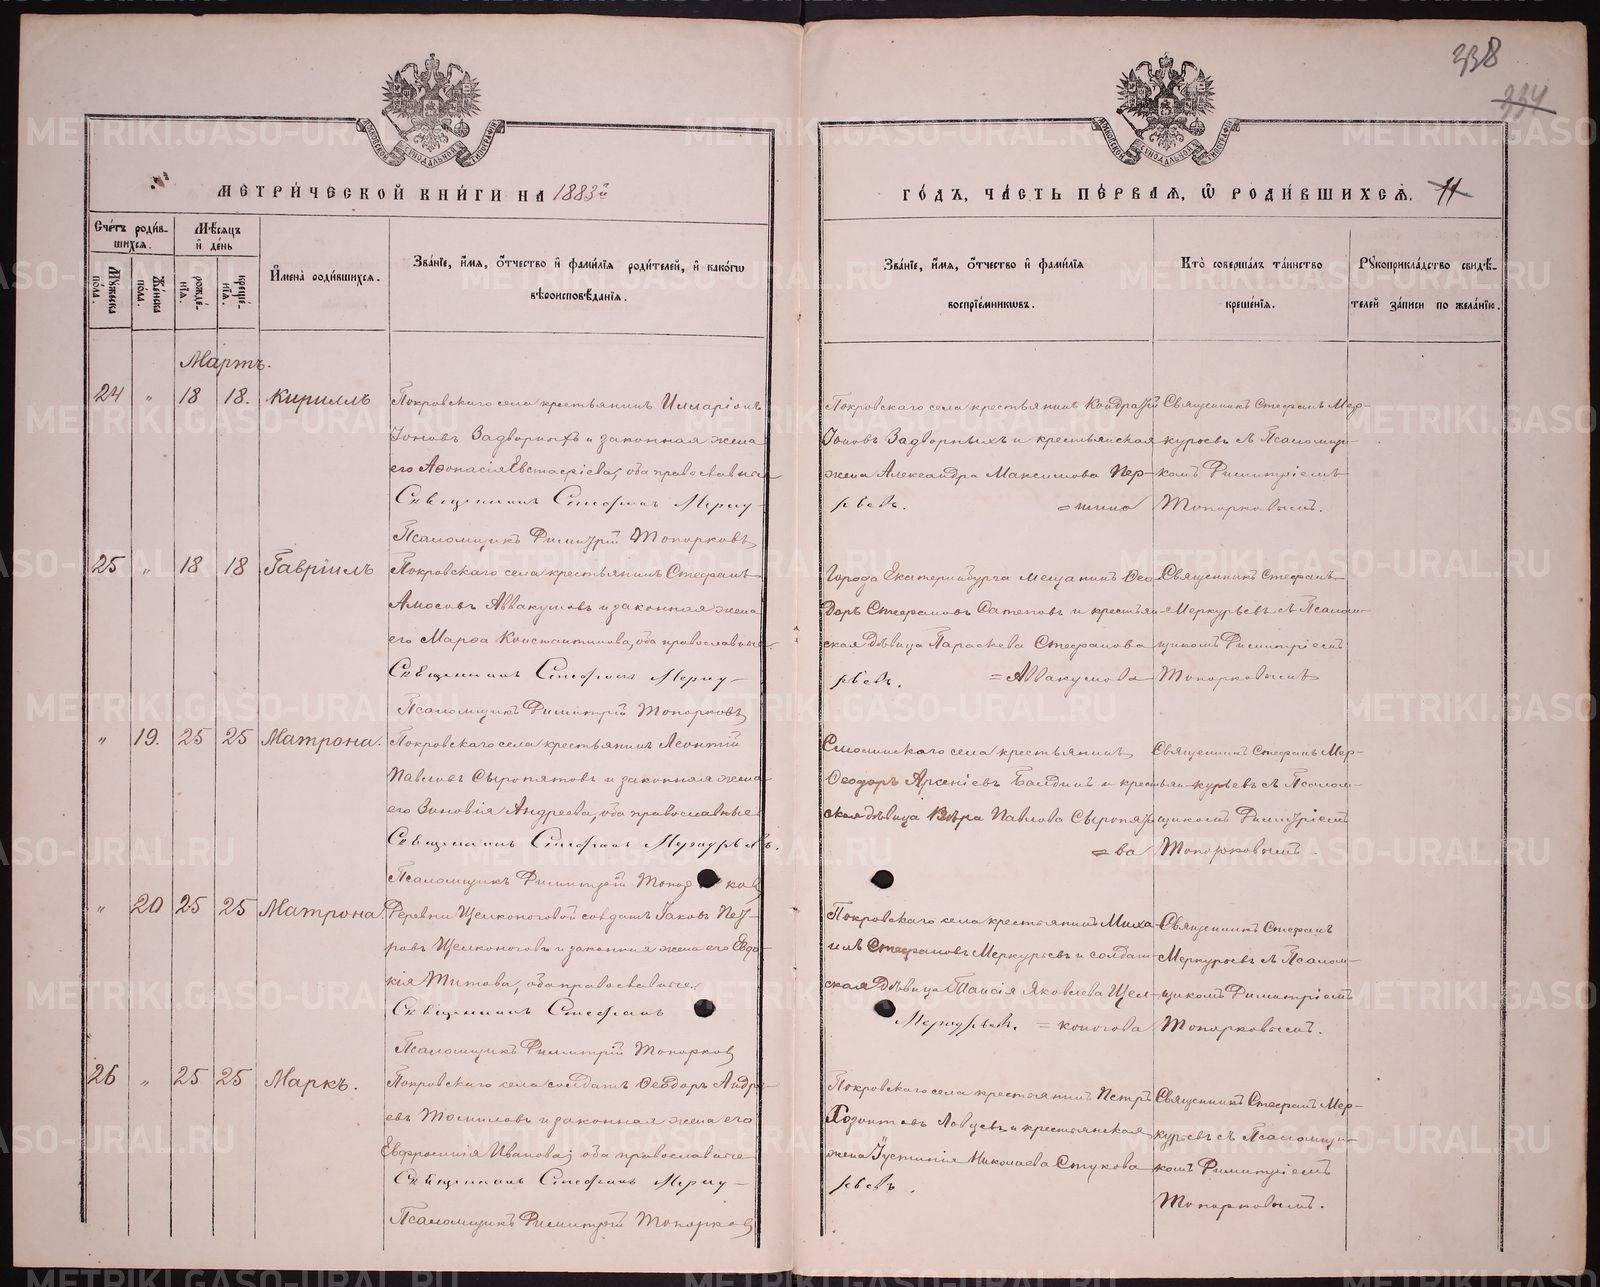 338
334
МОСКОВСКОЙ СѴНОДАЛЬНОЙ ТИПОГРАФІИ
МОСКОВСКОЙ СѴНОДАЛЬНОЙ ТИПОГРАФІИ
МЕТРИ́ЧЕСКОЙ КНИ́ГИ НА 1883й
ГО́ДЪ, ЧА́СТЬ ПЕ́РВАЯ, Ѡ РОДИ́ВШИХСѦ. 11
Сче́тъ роди́вшихся.
Мѣ́сяцъ и҆ де́нь
Му́жеска по́ла.
Же́нска по́ла.
рожде́нїя.
креще́нїя.
И҆мена̀ роди́вшихся.
Зва́нїе, и҆́мя, ѻ҆́тчество и҆ фами́лїя роди́телей, и҆ како́гѡ
вѣроисповѣ́данїя.
Зва́нїе, и҆́мя, ѻ҆́тчество и҆ фами́лїя
воспрїе́мниковъ.
Кто̀ соверша́лъ та́инство
креще́нїя.
Рꙋкоприкла́дство свидѣ́-
телей за́писи по жела́нїю.
Мартъ.
24 " 18 18. Кириллъ
Покровскаго села крестьянинъ Илларіонъ
Іоновъ Задворныхъ и законная жена
его Афонасія Евстафіева, оба православные
Священникъ Стефанъ Мерку-
Псаломщикъ Димитрій Топорковъ
Покровскаго села крестьянинъ Кондратій
Іоновъ Задворныхъ и крестьянская
жена Александра Максимова Пер-
рьевъ. =шина
Священникъ Стефанъ Мер-
курьевъ съ Псаломщи-
комъ Димитріемъ
Топорковымъ.
25 " 18 18 Гавріилъ
Покровскаго села крестьянинъ Стефанъ
Амосовъ Аввакумовъ и законная жена
его Марфа Константинова, оба православные.
Священникъ Стефанъ Мерку-
Псаломщикъ Димитрій Топорковъ
Города Екатеринбурга мещанинъ Ѳео-
доръ Стефановъ и крестьян-
ская дѣвица Параскева Стефанова
рьевъ. =Аввакумова
Священникъ Стефанъ
Меркурьевъ съ Псалом-
щикомъ Димитріемъ
Топорковымъ
" 19. 25 25 Матрона.
Покровскаго села крестьянинъ Леонтій
Павловъ Сыропятовъ и законная жена
его Зиновія Андреева, оба православные
Священникъ Стефанъ Меркурьевъ.
Псаломщикъ Димитрій Топорковъ
села крестьянинъ
Ѳеодоръ Арсеніевъ и крестьян-
ская дѣвица Вѣра Павлова Сыропято
=ва
Священникъ Стефанъ Мер-
курьевъ съ Псалом-
щикомъ Димитріемъ
Топорковымъ.
" 20 25 25 Матрона.
Деревни Щелконоговой солдатъ Іаковъ Пет-
ровъ Щелконоговъ и законная жена его Евдо-
кія Титова, оба православные.
Священникъ Стефанъ
Псаломщикъ Димитрій Топорковъ
Покровскаго села крестьянинъ Миха-
илъ Стефановъ Меркурьевъ и солдат-
ская дѣвица Таисія Яковлева Щел-
Меркурьевъ. =коногова
Священникъ Стефанъ
Меркурьевъ съ Псалом-
щикомъ Димитріемъ
Топорковымъ.
26 " 25 25 Маркъ.
Покровскаго села солдатъ Ѳеодоръ Андре-
евъ Томиловъ и законная жена его
Евфросинія Иванова, оба православные
Священникъ Стефанъ Мерку-
Псаломщикъ Димитрій Топорковъ
Покровскаго села крестьянинъ Петръ
и крестьянская
жена Іустинія Николаева Стукова
рьевъ.
Священникъ Стефанъ Мер-
курьевъ съ Псаломщи-
комъ Димитріемъ
Топорковымъ.
METRIKI.GASO-URAL.RU